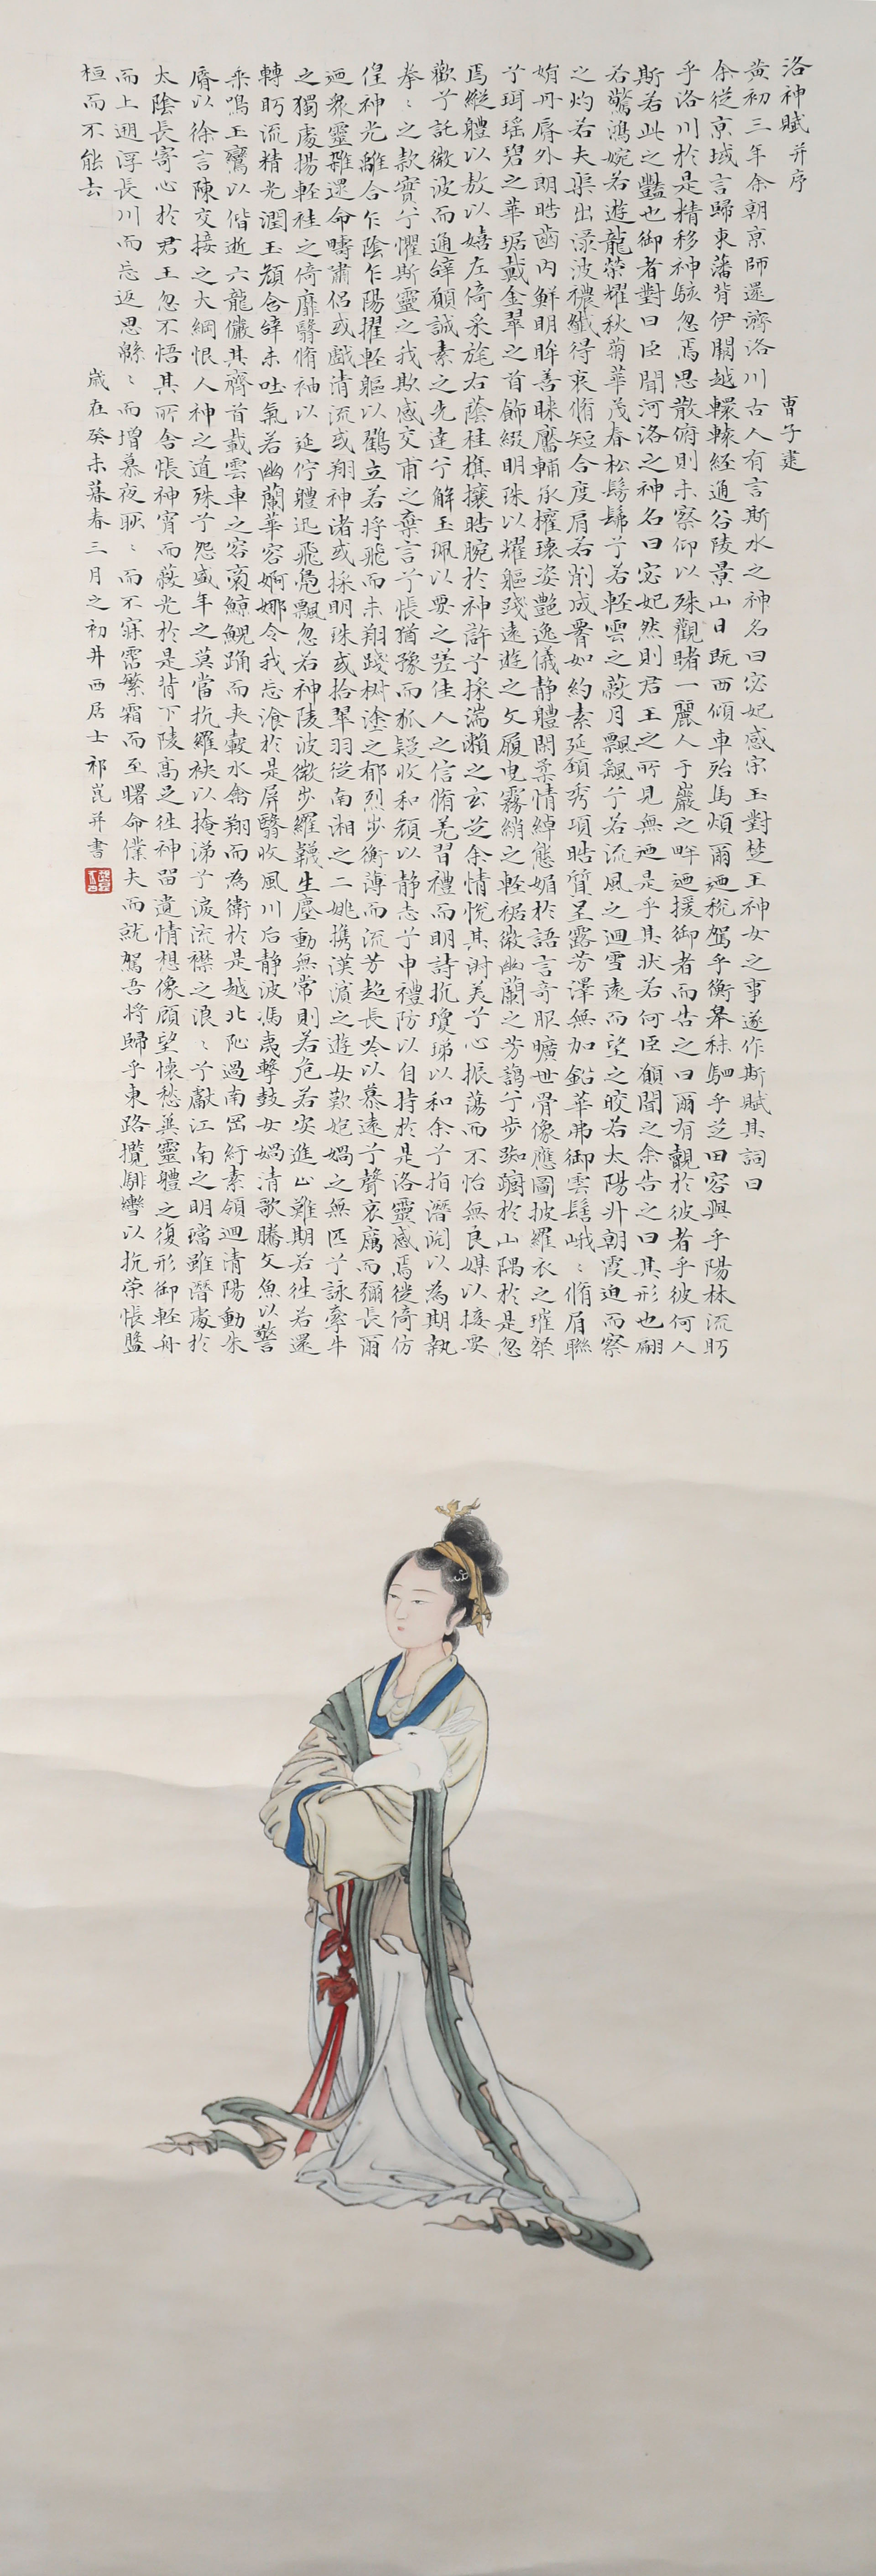 洛神賦并序 曹子建
黃初三年余朝京師還濟洛川古人有言斯水之神名曰宓妃感宋玉對楚王神女之事遂作斯賦其詞曰
余從京域言歸東藩背伊闕越轘轅經通谷陵景山日既西傾車殆馬煩爾迺稅駕乎衡皋秣駟乎芝田容與乎陽林流眄
乎洛川於是精移神駭忽焉思散俯則未察仰以殊觀睹一麗人于巖之畔迺援御者而告之曰爾有覿於彼者乎彼何人
斯若此之豔也御者對曰臣聞河洛之神名曰宓妃然則君王之所見無迺是乎其狀若何臣願聞之余告之曰其形也翩
若驚鴻婉若遊龍榮耀秋菊華茂春松髣髴兮若輕雲之蔽月飄飖兮若流風之迴雪遠而望之皎若太陽升朝霞迫而察
之灼若夫渠出淥波襛纖得衷脩短合度肩若削成署如約素延頸秀項皓質呈露芳澤無加鉛華弗御雲髻峨〻脩眉聯
娟丹脣外朗皓齒內鮮明眸善睞靨輔承權瓌姿艷逸儀静體閑柔情綽態媚於語言奇服曠世骨像應圖披羅衣之璀粲
兮珥瑤碧之華琚戴金翠之首飾綴明珠以耀軀踐遠遊之文履曳霧綃之輕裾微幽蘭之芳藹兮步踟躕於山隅於是忽
焉縱體以敖以嬉左倚采旄右蔭桂旗攘皓腕於神滸兮採湍瀨之玄芝余情悅其淑美兮心振蕩而不怡無良媒以接
歡兮託微波而通辭願誠素之先達兮解玉珮以要之嗟佳人之信脩羌習禮而明詩抗瓊珶以和余兮指潛淵以為期執
拳〻之款實兮懼斯靈之我欺感交甫之棄言兮悵猶豫而狐疑收和顏以静志兮申禮防以自持於是洛靈感焉徙倚彷
徨神光離合乍陰乍陽擢輕軀以鶴立若將飛而未翔踐椒塗之郁烈步衡薄而流芳超長吟以慕遠兮聲哀厲而彌長爾
迺衆靈雜遝命疇肅侶或戲清流或翔神渚或採明珠或拾翠羽從南湘之二姚攜漢濱之遊女歎匏媧之無匹兮詠牽牛
之獨處揚輕袿之倚靡翳脩袖以延佇體迅飛鳧飄忽若神陵波微步羅韈生塵動無常則若危若安進止難期若往若還
轉眄流精光潤玉顏含辭未吐氣若幽蘭華容婀娜令我忘湌於是屏翳收風川后静波馮夷擊鼓女媧清歌騰文魚以警
乘鳴玉鸞以偕逝六龍儼其齊首載雲車之容裔鯨鯢踊而夾轂水禽翔而為衛於是越北沚過南岡紆素領迴清陽動朱
脣以徐言陳交接之大綱恨人神之道殊兮怨盛年之莫當抗羅袂以掩涕兮淚流襟之浪〻兮獻江南之明璫雖潛處於
太陰長寄心於君王忽不悟其所舍悵神宵而蔽光於是背下陵高足往神留遺情想像顧望懷愁冀靈體之復形御輕舟
而上遡浮長川而忘返思緜〻而增慕夜耿〻而不寐霑繁霜而至曙命僕夫而就駕吾將歸乎東路攬騑轡以抗策悵盤
桓而不能去 歲在癸未暮春三月之初井西居士祁崑并書